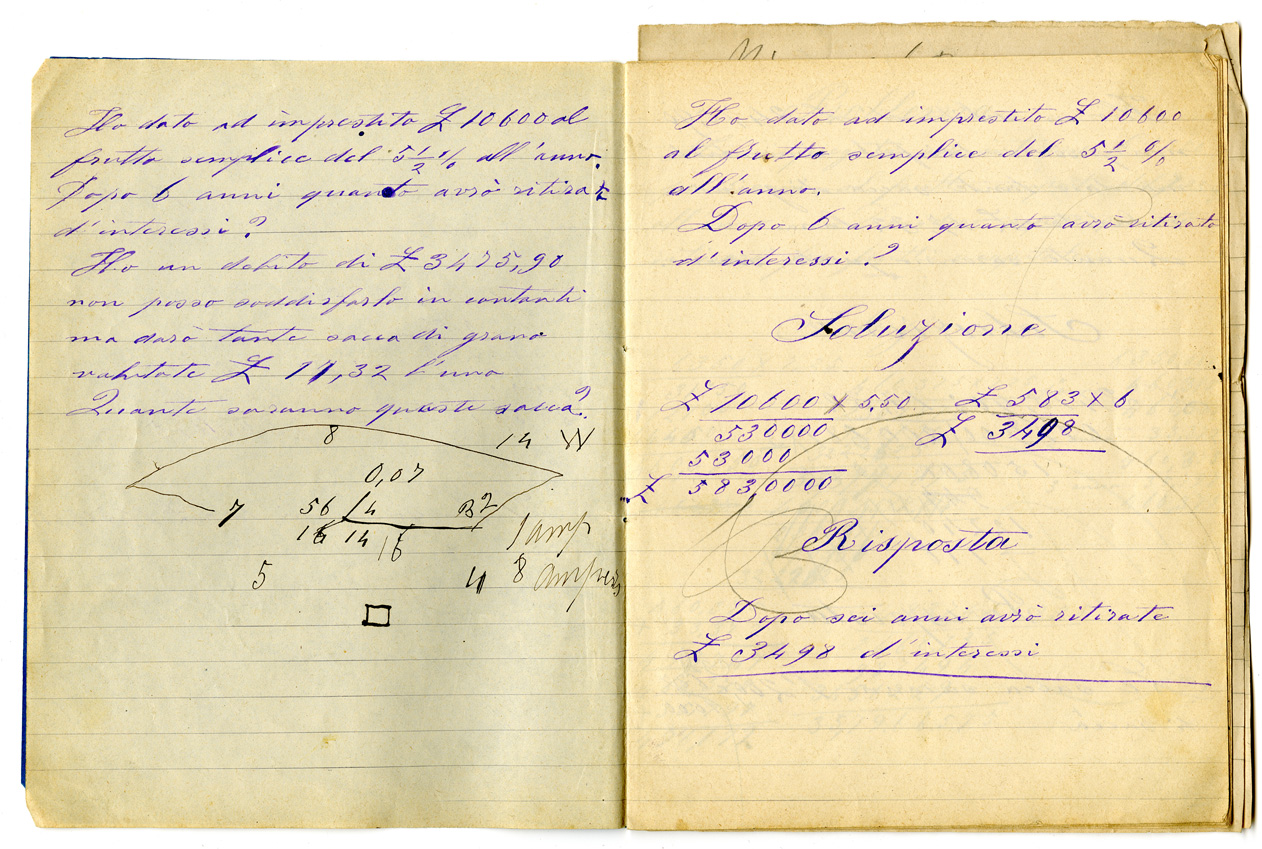 Ho dato ad imprestito £ 10600 al
frutto semplice del 5 1/2 % all'anno.
Dopo 6 anni quanto avrò ritirat
d'interessi?
Ho un debito di £ 3475,90
non posso soddisfarlo in contanti
ma darò tante sacca di grano
valutate £ 17,32 l'uno
Quante saranno queste sacca?
8 14 W
0,07
7 56 14 B2
14 16 1 amp
5 4 8 ampers
Ho dato ad imprestito £ 10600
al frutto semplice del 5 1/2 %
all'anno.
Dopo 6 anni quanto avrò ritirato
d'interessi?
Soluzione
£ 10600 x 5,50 £ 583 x 6
530000 £ 3498
53000
£ 583,0000
Risposta
Dopo sei anni avrò ritirate
£ 3498 d'interessi